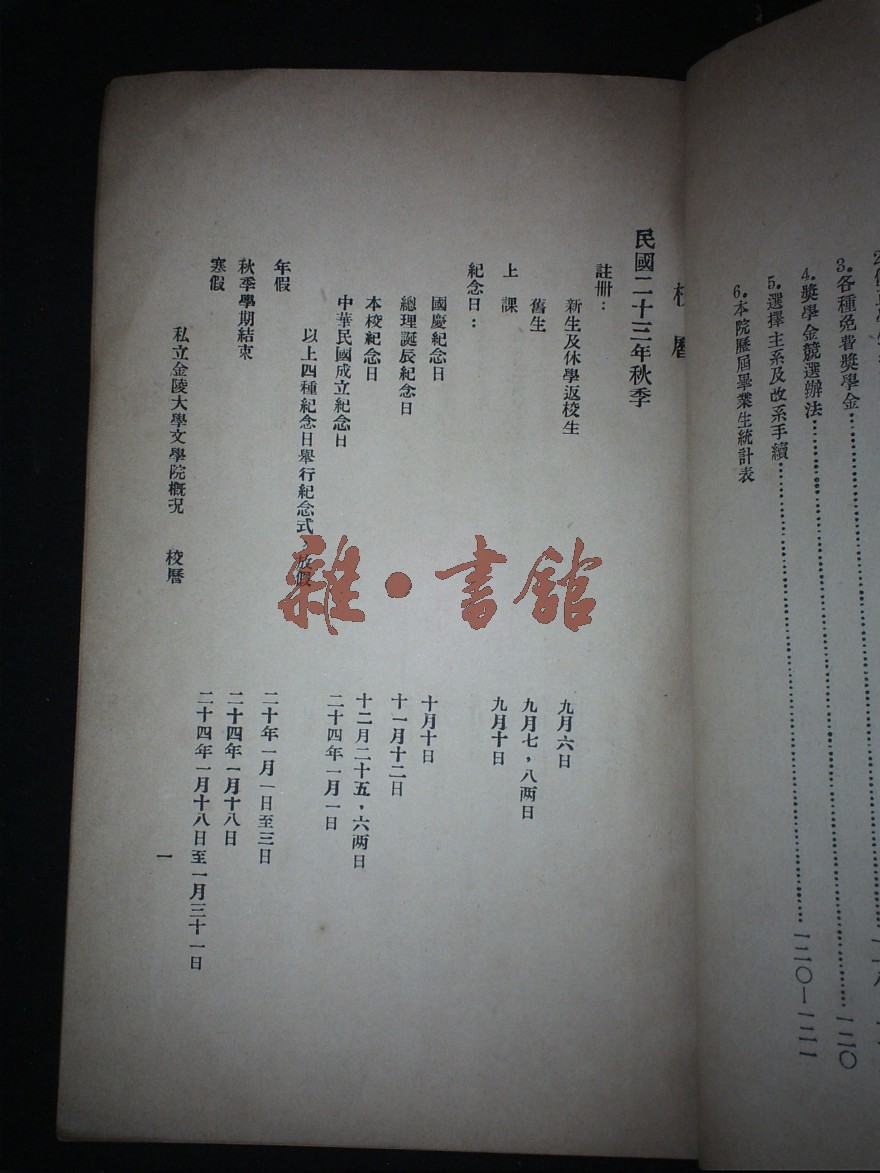 3.各種免費獎學金……一二〇
4.獎學金競選辦法……一二〇—一二一
5.選擇主系及改系手續
6.本院歷屆畢業生統計表
校曆
民國二十三年秋季
註冊：
新生及休學返校生 九月六日
舊生 九月七，八两日
上課 九月十日
紀念日：
國慶紀念日 十月十日
總理誕辰紀念日 十一月十二日
本校紀念日 十二月二十五，六两日
中華民國成立紀念日 二十四年一月一日
以上四種紀念日舉行紀念式，放假
年假 二十年一月一日至三日
秋季學期結束 二十四年一月十八日
寒假 二十四年一月十八日至一月三十一日
私立金陵大學文學院概況 校曆
一
雜·書館